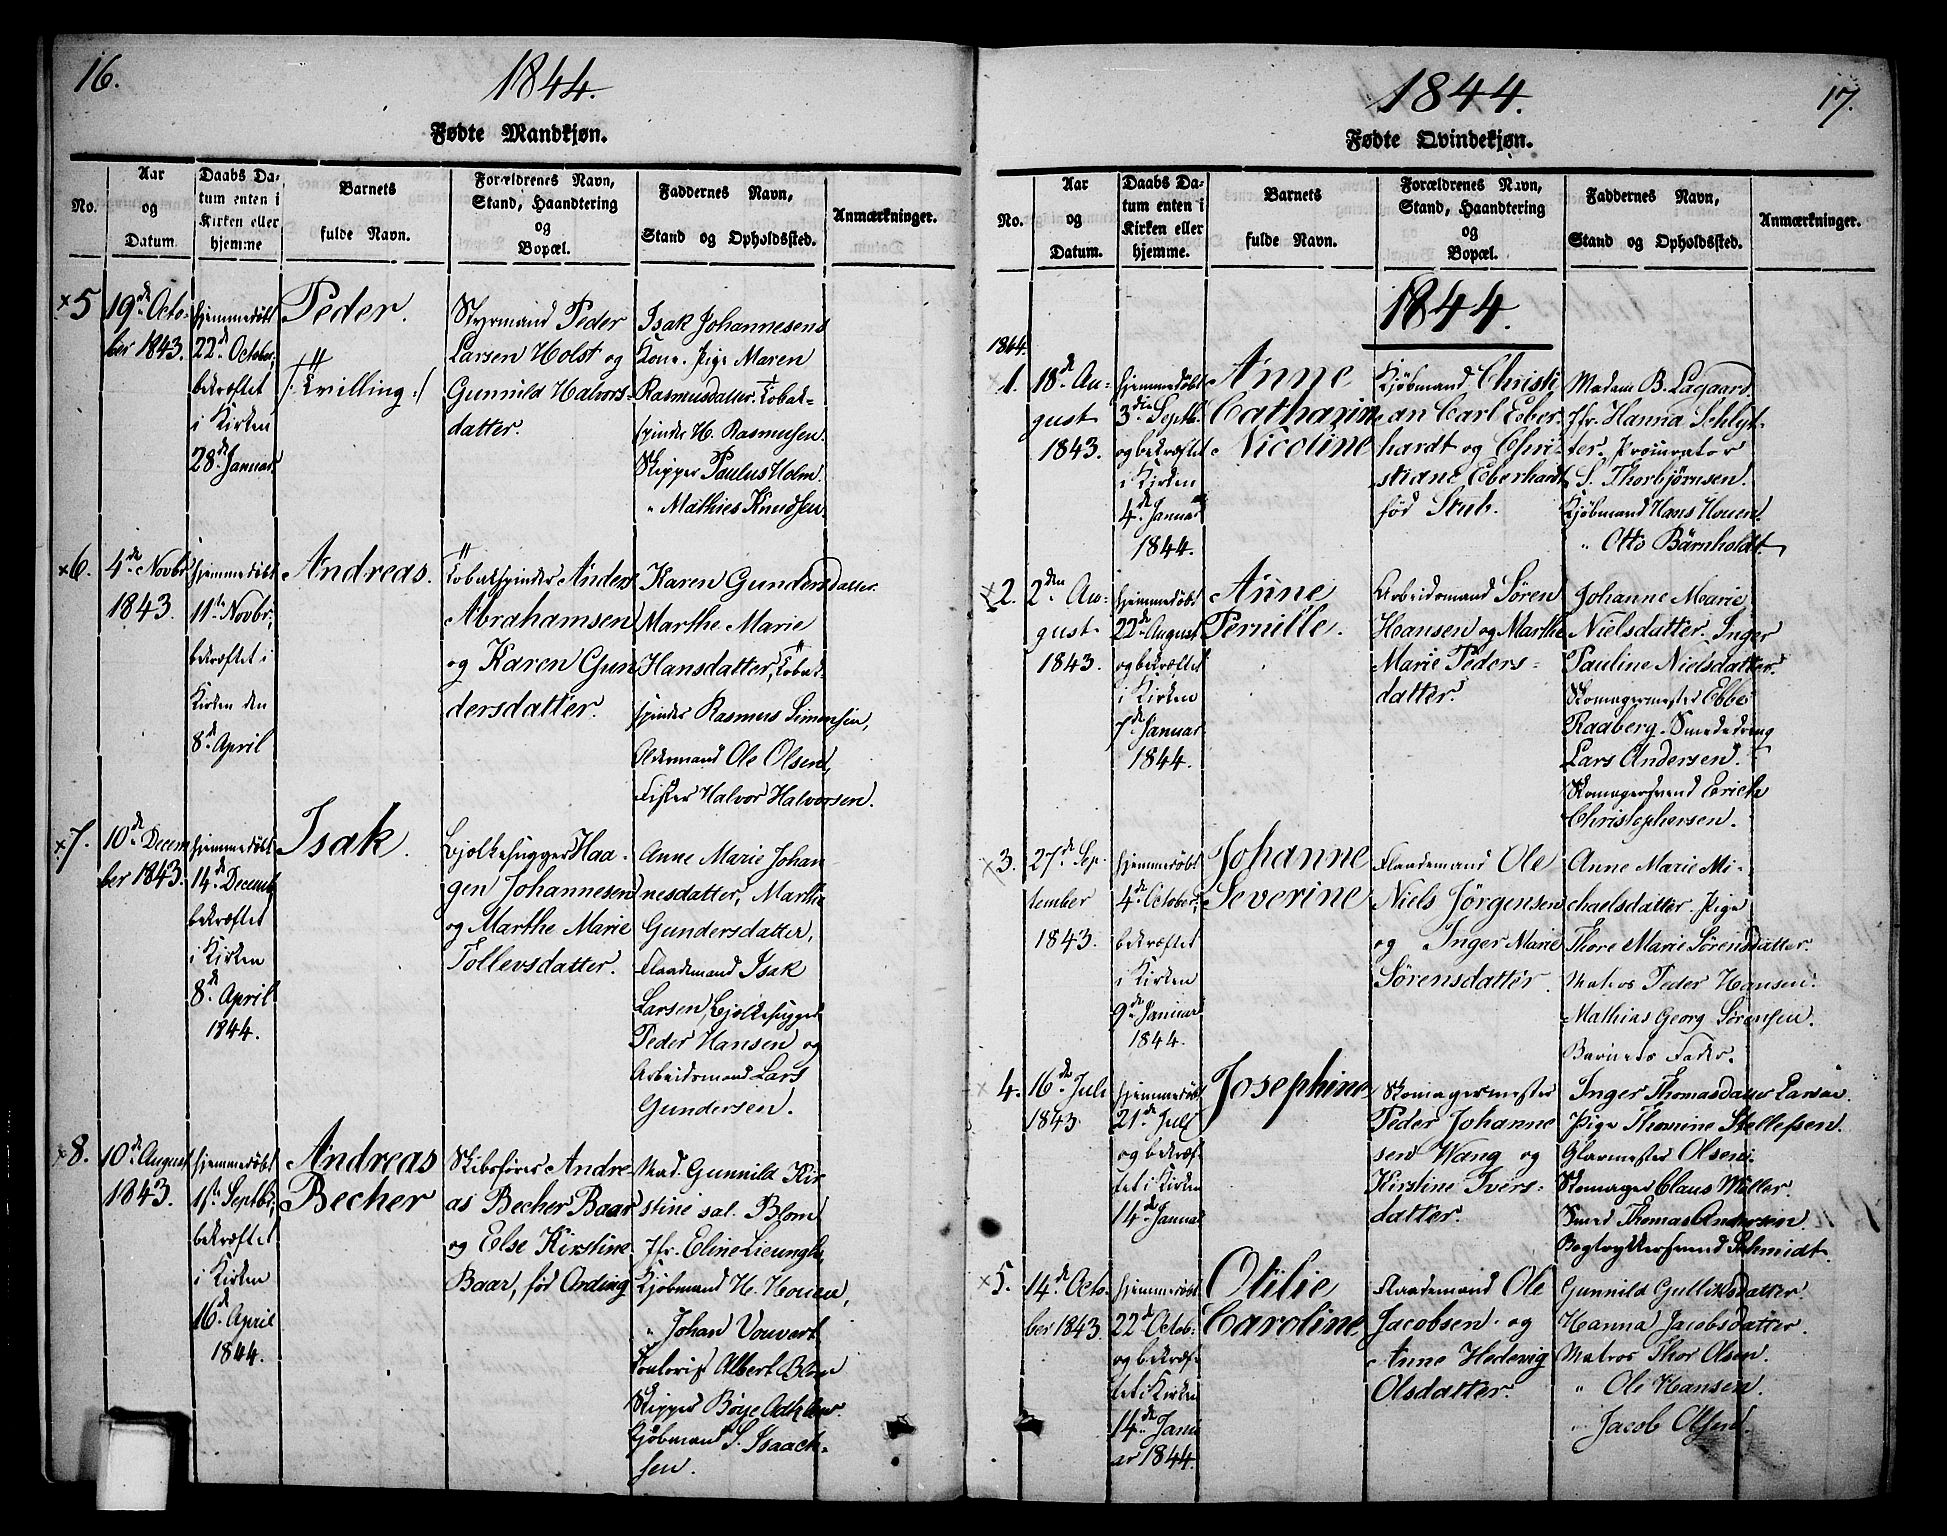 16.
1844.
Fødte Mandkjøn.
No.
Aar
og
Datum.
Daabs Da-
tum enten i
Kirken eller
hjemme
Barnets
fulde Navn.
Forældrenes Navn,
Stand, Haandtering
og
Bopæl.
Faddernes Navn,
Stand og Opholdssted.
Anmærkninger.
×5
19de Octo-
ber 1843.
hjemmedøbt
22de October,
bekræftet
i Kirken
28de Januar
Peder.
/: Tvilling :/
Styrmand Peder
Larsen Holst og
Gunnild Halvors-
datter.
Isak Johannesens
Kone. Pige Maren
Rasmusdatter. Tobak-
spinder H. Rasmusen.
Skipper Paulus Holm.
" Mathies Knudsen.
×6.
4de Novbr
1843.
hjemmedøbt
11te Novbr,
bekræftet i
Kirken den
8de April
Andreas.
Tobakspinder Anders
Abrahamsen
og Karen Gun
dersdatter.
Karen Gundersdatter.
Marthe Marie
Hansdatter, Tobak-
spinder Rasmus Simonsen,
Oldermand Ole Olsen,
Fisker Halvor Halvorsen.
×7.
10de Decem
ber 1843.
hjemmedøbt
14de Decemb,
bekræftet
i Kirken
8de April
1844.
Isak.
Bjelkehugger Haa-
gen Johannesen
og Marthe Marie
Tollevsdatter.
Anne Marie Johan
nesdatter, Marthe
Gundersdatter,
Flaademand Isak
Larsen, Bjelkehugger
Peder Hansen og
Arbeidsmand Lars
Gundersen.
×8.
10de August
1843.
hjemmedøbt
1ste Septbr,
bekræftet
i Kirken
16de April
1844.
Andreas
Becher
Skibsfører Andre-
as Becher Baar
og Else Kirstine
Baar, fød Ording
Mad. Gunnild Kir-
stine sal. Blom
Jfr. Eline Lieungh,
Kjøbmand H. Houen,
" Johan Vouvert
Contorist Albert Blom
Skipper Böye
Kjøbmand S. Isaach-
sen.
17.
1844.
Fødte Qvindekjøn.
No.
Aar
og
Datum.
Daabs Da-
tum enten i
Kirken eller
hjemme.
Barnets
fulde Navn.
Forældrenes Navn,
Stand, Haandtering
og
Bopæl.
Faddernes Navn,
Stand og Opholdssted.
Anmærkninger.
1844.
1844.
×1.
18de Au-
gust
1843.
hjemmedøbt
3die Septb.
og bekræftet
i Kirken
4de Januar
1844.
Anne
Catharine
Nicoline
Kjøbmand Christi
an Carl Eber-
hardt og Chri-
stiane Eberhardt
fød Stub.
Madam B. Lagaard
Jfr. Hanna Schlyt-
ter. Procurator
S. Thorbjørnsen.
Kjøbmand Hans Houen.
" Otto Bärnholdt.
×2.
2den Au-
gust
1843.
hjemmedøbt
22de August
og bekræftet
i Kirken
7de Januar
1844.
Anne
Pernille.
Arbeidsmand Søren
Hansen og Marthe
Marie Peders-
datter.
Johanne Marie
Nielsdatter. Inger
Pauline Nielsdatter.
Skomagermester Ebbe
Raaberg. Smededreng
Lars Andersen.
Skomagersvend Erich
Christophersen.
×3.
27de Sep-
tember
1843.
hjemmedøbt
4de October,
bekræftet
i Kirken
9de Januar
1844.
Johanne
Severine
Flaademand Ole
Niels Jørgensen
og Inger Marie
Sørensdatter.
Anne Marie Mi-
chaelsdatter. Pige
Thore Marie Sørensdatter.
Matros Peder Hansen.
Mathias Georg Sørensen.
Barnets Fader.
×4.
16de Juli
1843.
hjemmedøbt
21de Juli
og bekræf-
tet i Kirken
14de Januar
Josephine
Skomagermester
Peder Johanne
sen Wang og
Kirstine Ivers-
datter.
Inger Thomasdatter
Pige Thomine Stellefsen.
Glarmester Olsen.
Skomager Claus Møller.
Smed Thomas Andersen.
Bogtrykkersvend Schmidt.
×5.
14de Octo-
ber 1843.
hjemmedøbt
22de Octob.
og bekræf-
tet i Kirken
14de Janu
ar 1844.
Otilie
Caroline
Flaademand Ole
Jacobsen og
Anne Hedevig
Olsdatter.
Gunnild Gulliksdatter
Hanna Jacobsdatter.
Matros Thor Olsen.
" Ole Hansen.
" Jacob Olsen.